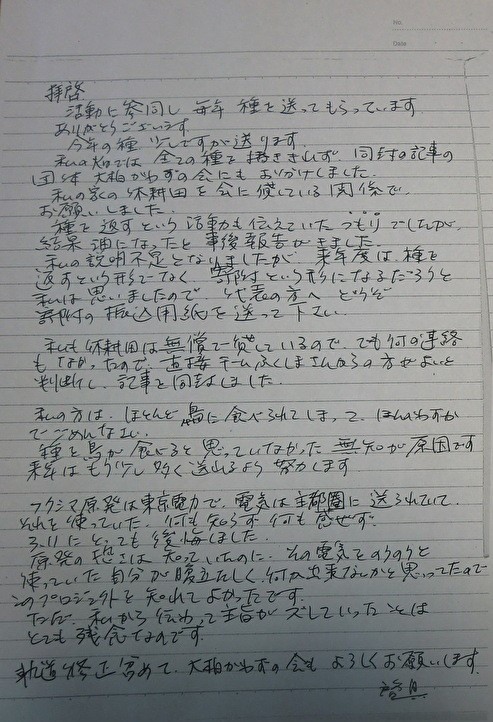 No.
Date
拝啓
活動に参同し 毎年 種を送ってもらっています
ありがとうございます
今年の種 少しですが送ります
私の畑では 全ての種を播ききれず 同封の記事の
団体 大相かわずの会にもおかけしました
私の家の休耕田を会に貸している関係で
お願いしました
種を返すという活動も伝えていたつもりでしたが
結果 油になったと事後報告がきました
私の説明不足となりましたが 来年度は種を
返すという形でなく 寄附という形になるだろうと
私は思いましたので 代表の方へ どうぞ
寄附の振込用紙を送って下さい
私も休耕田は無償で貸しているので でも何の連絡
もなかったので 直接チームふくしまさんからの方がよいと
判断し 記事と同封しました
私の方は ほとんど鳥に食べられてしまって ほんのわずか
でごめんなさい
種を鳥が食べると思っていなかった 無知が原因です
来年はもう少し多く送れるよう努力します
フクシマ原発は東京電力で 電気は主都圏に送られていて
それを使っていた 何も知らず何も感ぜず
3.11にとっても後悔しました
原発の恐さは知っていたのに その電気をのうのうと
使っていた自分が腹立たしく 何か出来ないかと思ってたので
このプロジェクトを知れてよかったです
ただ 私から伝わって主旨がズレていったことは
とても残念なのです
軌道修正含めて 大相かわずの会も よろしくお願いします